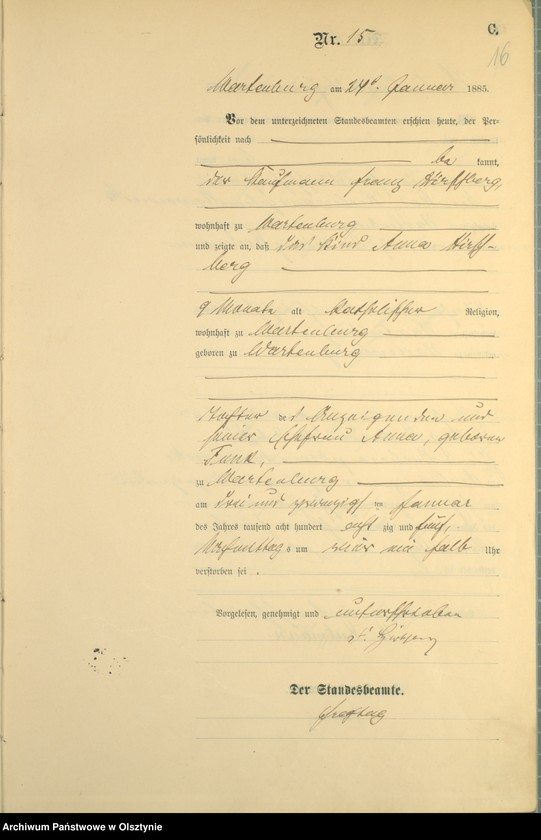 C.
Nr. 15
16
Wartenburg am 24ten Januar 1885.
Vor dem unterzeichneten Standesbeamten erschien heute, der Per-
sönlichkeit nach
be kannt,
der Kaufmann Franz Hirschberg,
wohnhaft zu Wartenburg
und zeigte an, daß das Kind Anna Hirsch-
berg
9 Monate alt katholischer Religion,
wohnhaft zu Wartenburg
geboren zu Wartenburg
Tochter des Anzeigenden und
seiner Ehefrau Anna, geborene
Funk,
zu Wartenburg
am drei und zwanzigsten Januar
des Jahres tausend acht hundert acht zig und fünf,
Nachmittags um ein halb Uhr
verstorben sei.
Vorgelesen, genehmigt und unterschrieben
F. Hirschberg
Der Standesbeamte.